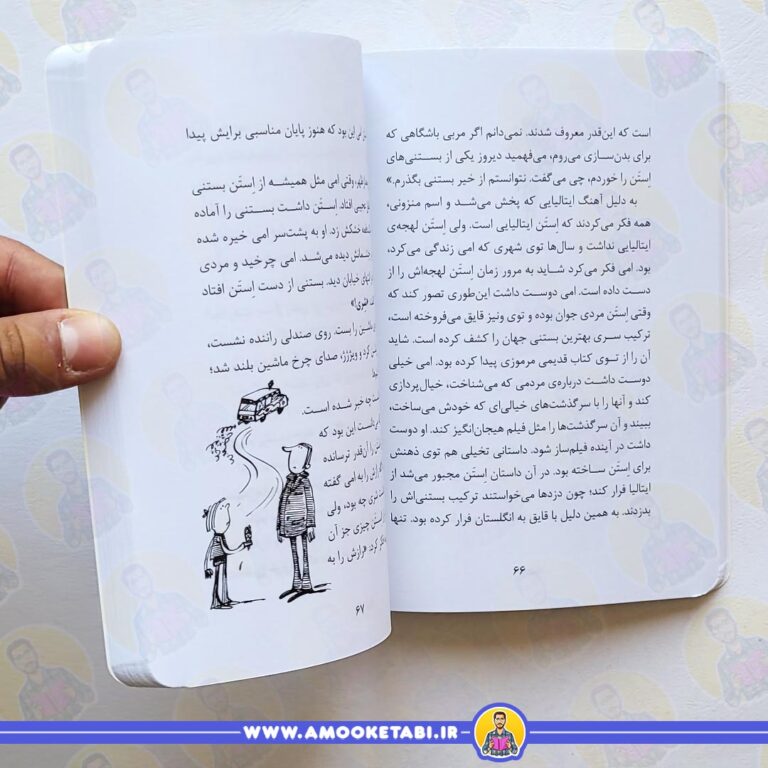 است که این‌قدر معروف شدند. نمی‌دانم اگر مربی باشگاهی که
برای بدن‌سازی می‌روم، می‌فهمید دیروز یکی از بستنی‌های
اِستَن را خوردم، چی می‌گفت. نتوانستم از خیر بستنی بگذرم.»
به دلیل آهنگ ایتالیایی که پخش می‌شد و اسم منزونی،
همه فکر می‌کردند که اِستَن ایتالیایی است. ولی اِستَن لهجه‌ی
ایتالیایی نداشت و سال‌ها توی شهری که امی زندگی می‌کرد،
بود. امی فکر می‌کرد شاید به مرور زمان اِستَن لهجه‌اش را از
دست داده است. امی دوست داشت این‌طوری تصور کند که
وقتی اِستَن مردی جوان بوده و توی ونیز قایق می‌فروخته است،
ترکیب سری بهترین بستنی جهان را کشف کرده است. شاید
آن را از توی کتاب قدیمی مرموزی پیدا کرده بود. امی خیلی
دوست داشت درباره‌ی مردمی که می‌شناخت، خیال‌پردازی
کند و آنها را با سرگذشت‌های خیالی‌ای که خودش می‌ساخت،
ببیند و آن سرگذشت‌ها را مثل فیلم هیجان‌انگیز کند. او دوست
داشت در آینده فیلم‌ساز شود. داستانی تخیلی هم توی ذهنش
برای اِستَن ساخته بود. در آن داستان اِستَن مجبور می‌شد از
ایتالیا فرار کند؛ چون دزدها می‌خواستند ترکیب بستنی‌اش را
بدزدند. به همین دلیل با قایق به انگلستان فرار کرده بود. تنها
۶۶
این بود که هنوز پایان مناسبی برایش پیدا
وقتی امی مثل همیشه از اِستَن بستنی
افتاد. اِستَن داشت بستنی را آماده
خشکش زد. او به پشت‌سر امی خیره شده
دیده می‌شد. امی چرخید و مردی
خیابان دید. بستنی از دست اِستَن افتاد
ماشین را بست. روی صندلی راننده نشست،
کرد و ویژژژ، صدای چرخ ماشین بلند شد؛
چه خبر شده است.
این بود که
را آن‌قدر ترسانده
رازش را به امی گفته
چه بود، ولی
اِستَن چیزی جز آن
رازش را به
۶۷
WWW.AMOOKETABI.IR